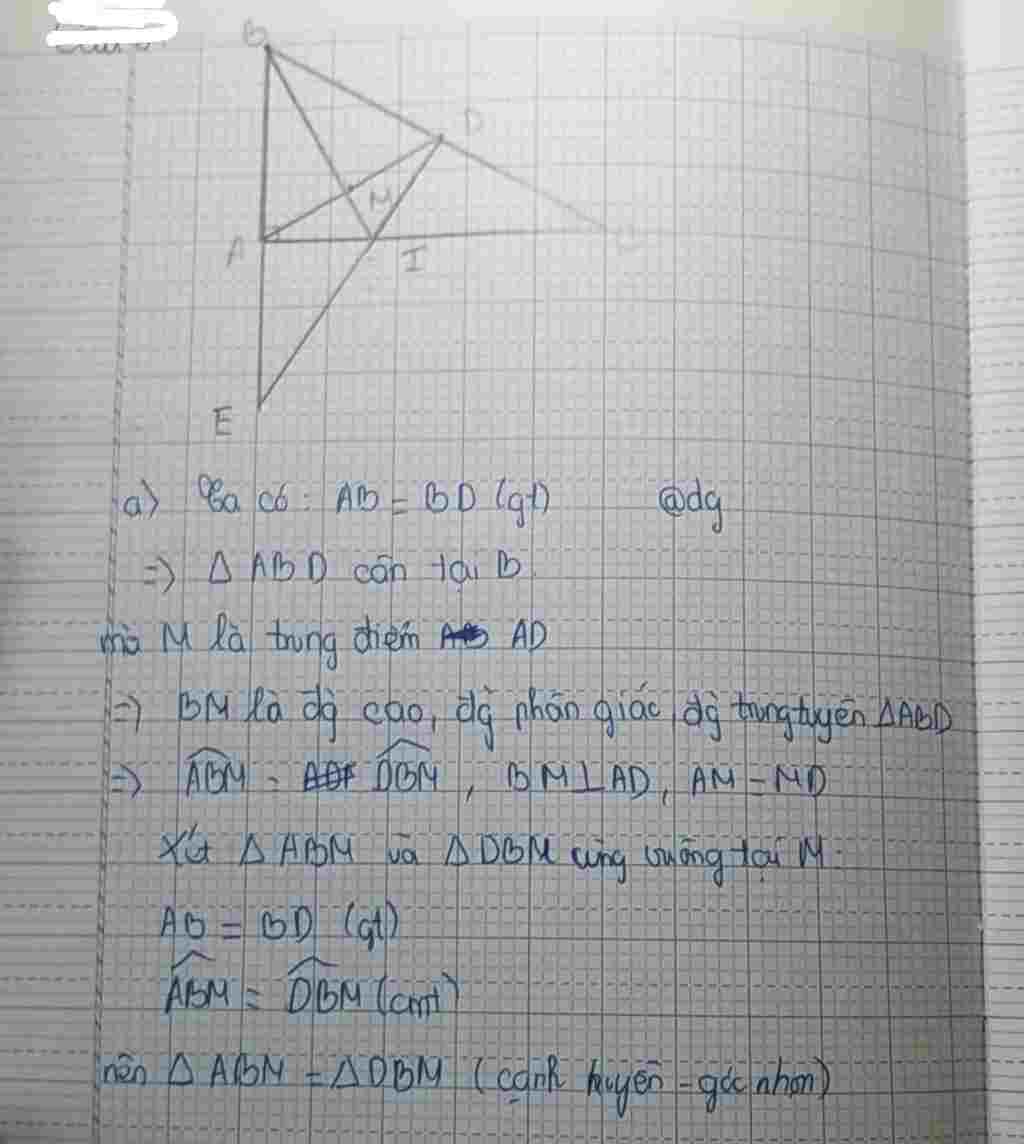 B
D
M
A
I
C
E
a) Ta có: AB = BD (gt) @dg
=> Δ ABD cân tại B.
mà M là trung điểm AD
=> BM là đg cao, đg phân giác, đg trung tuyến ΔABD
=> ABM = DBM, BM⊥AD, AM = MD
Xét Δ ABM và Δ DBM cùng vuông tại M:
AB = BD (gt)
ABM = DBM (cmt)
nên Δ ABM = ΔDBM (cạnh huyền - góc nhọn)